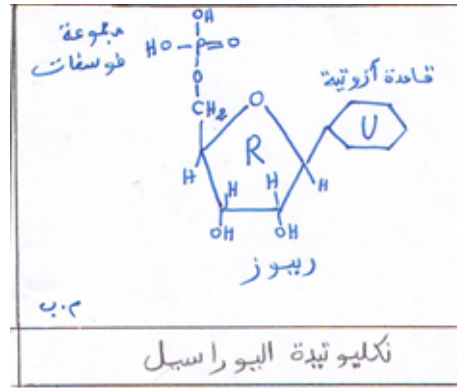 OH
مجموعة
فوسفات
HO-P=O
O
CH2
O
قاعدة آزوتية
U
R
H H H H
OH OH
ريبوز
م.ب
نكليوتيدة اليوراسيل